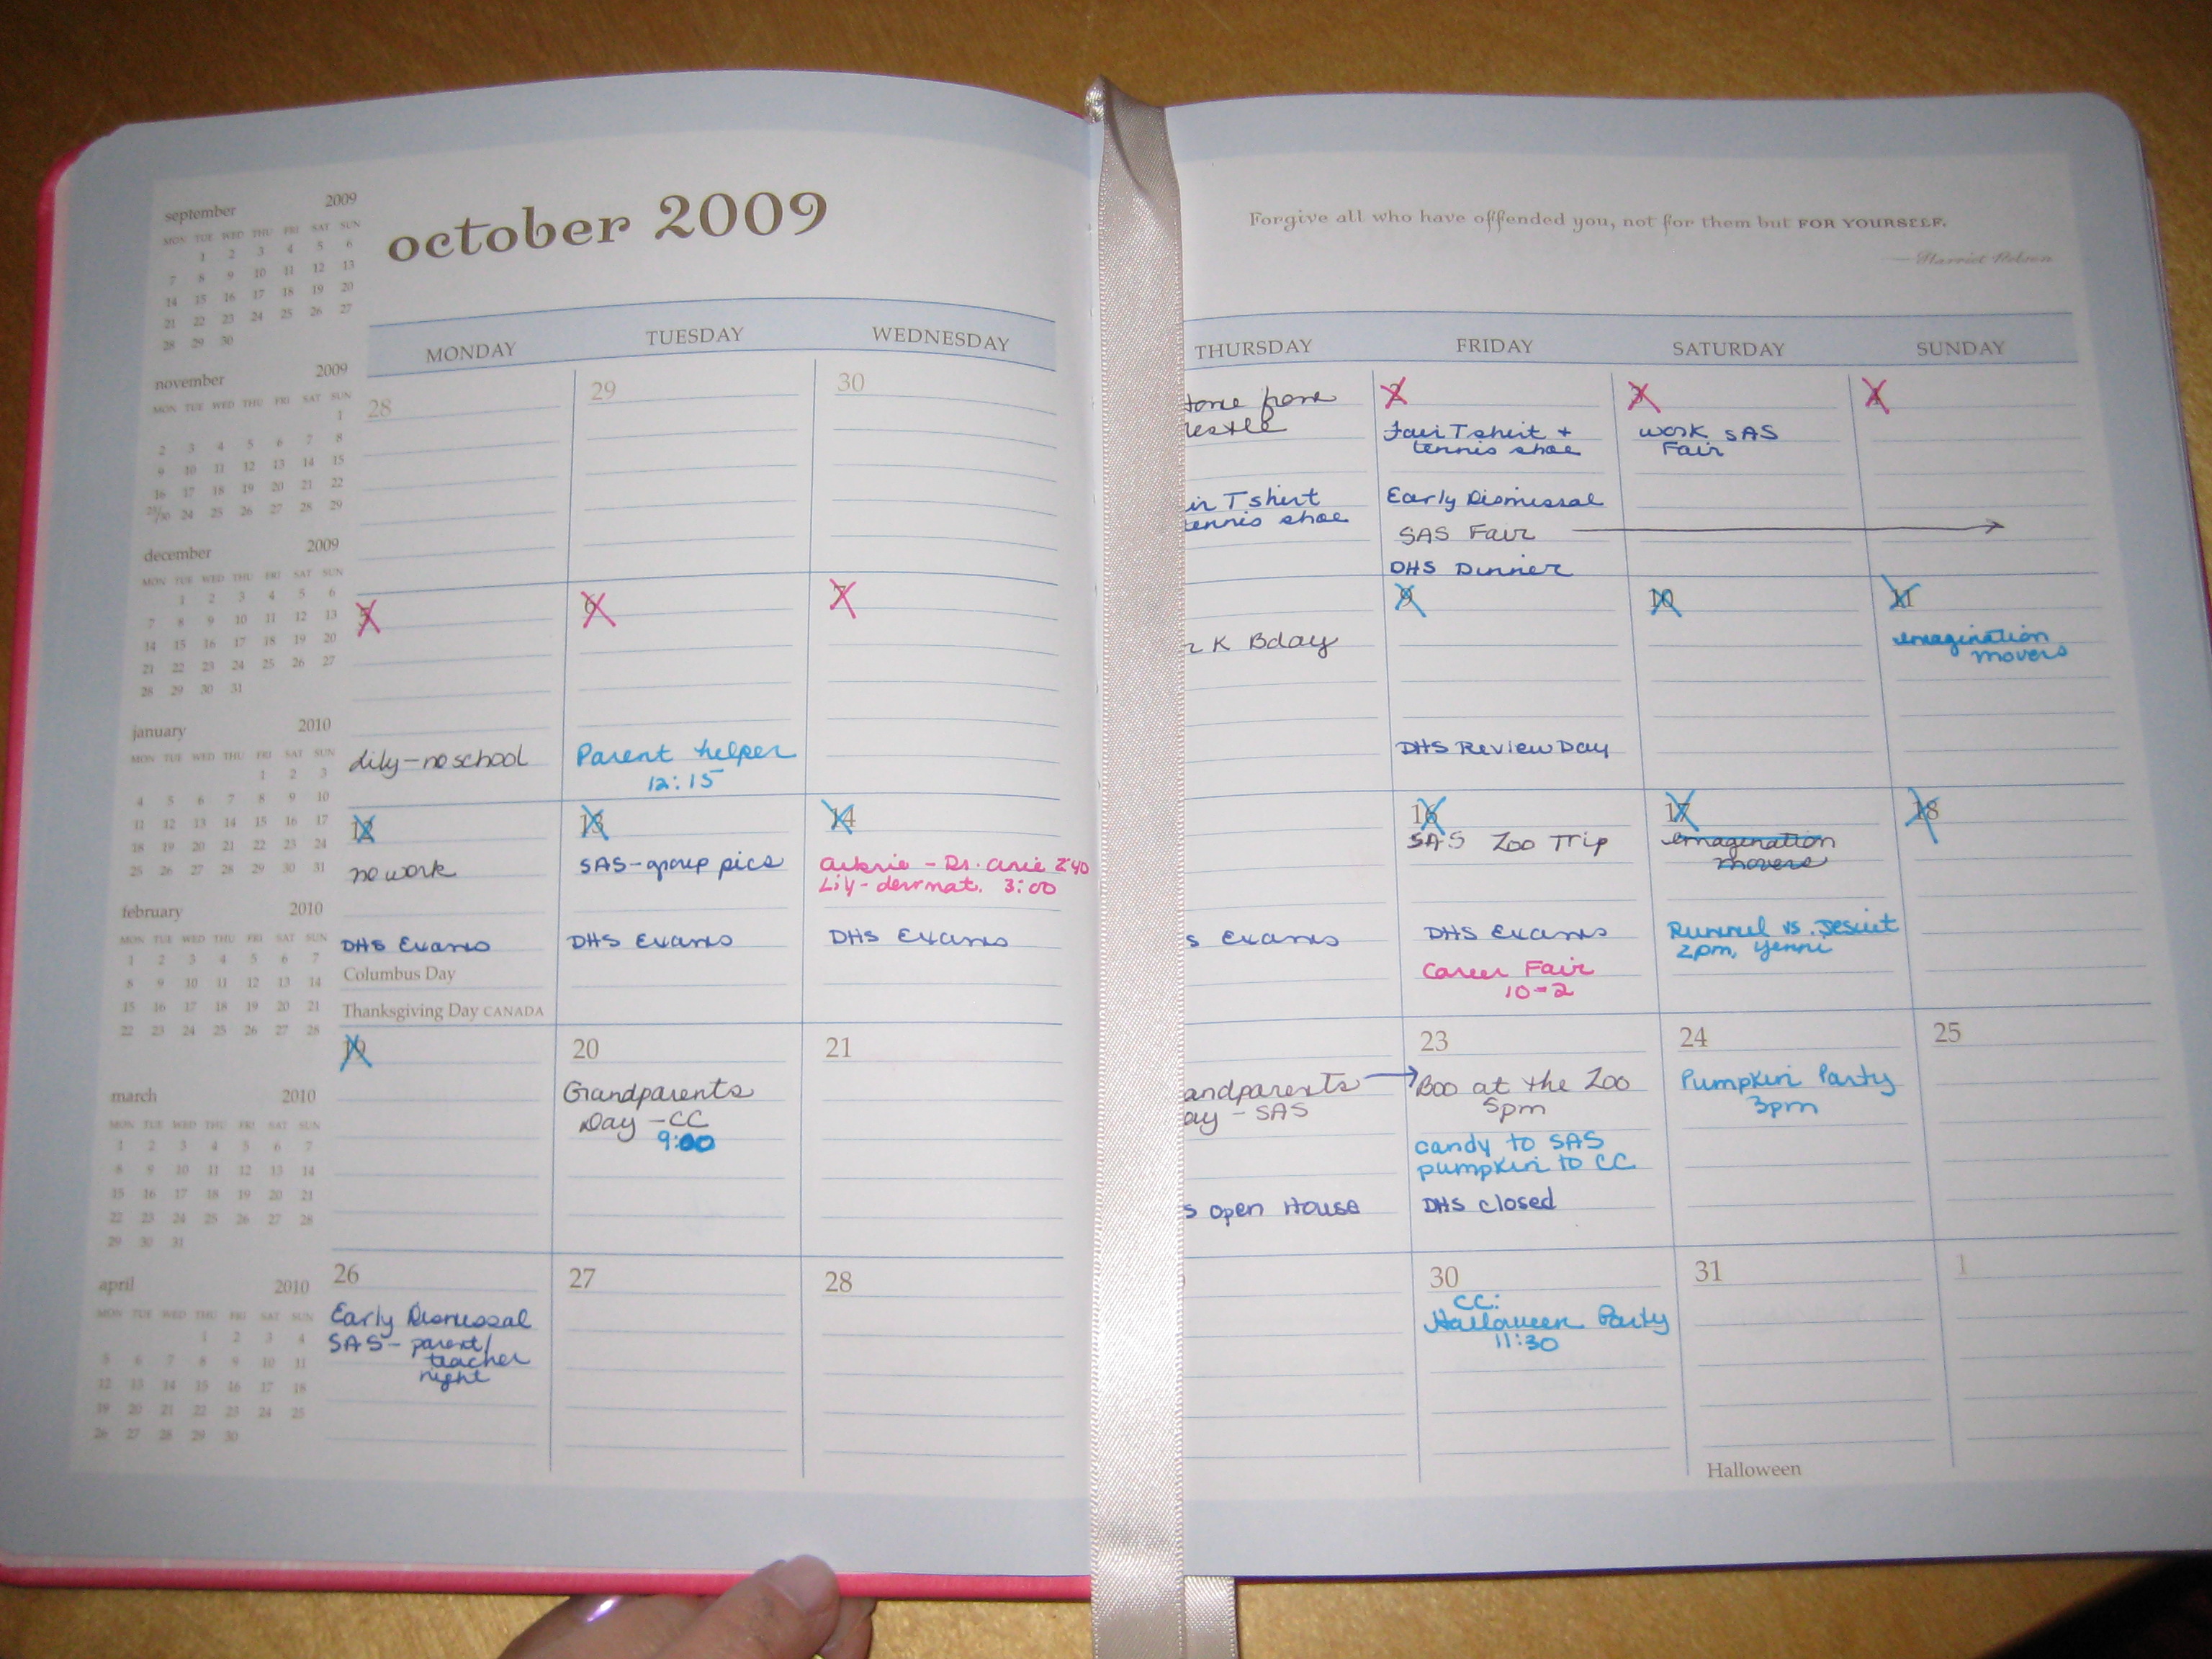 october 2009
Forgive all who have offended you, not for them but FOR YOURSELF.
—Harriet Nelson
september 2009
MON TUE WED THU FRI SAT SUN
1 2 3 4 5 6
7 8 9 10 11 12 13
14 15 16 17 18 19 20
21 22 23 24 25 26 27
28 29 30
november 2009
MON TUE WED THU FRI SAT SUN
1
2 3 4 5 6 7 8
9 10 11 12 13 14 15
16 17 18 19 20 21 22
23/30 24 25 26 27 28 29
december 2009
MON TUE WED THU FRI SAT SUN
1 2 3 4 5 6
7 8 9 10 11 12 13
14 15 16 17 18 19 20
21 22 23 24 25 26 27
28 29 30 31
january 2010
MON TUE WED THU FRI SAT SUN
1 2 3
4 5 6 7 8 9 10
11 12 13 14 15 16 17
18 19 20 21 22 23 24
25 26 27 28 29 30 31
february 2010
MON TUE WED THU FRI SAT SUN
1 2 3 4 5 6 7
8 9 10 11 12 13 14
15 16 17 18 19 20 21
22 23 24 25 26 27 28
march 2010
MON TUE WED THU FRI SAT SUN
1 2 3 4 5 6 7
8 9 10 11 12 13 14
15 16 17 18 19 20 21
22 23 24 25 26 27 28
29 30 31
april 2010
MON TUE WED THU FRI SAT SUN
1 2 3 4
5 6 7 8 9 10 11
12 13 14 15 16 17 18
19 20 21 22 23 24 25
26 27 28 29 30
MONDAY TUESDAY WEDNESDAY THURSDAY FRIDAY SATURDAY SUNDAY
28
29
30
from
T shirt
tennis shoe
2
Fair T shirt +
tennis shoe
Early Dismissal
SAS Fair
DHS Dinner
3
work SAS
Fair
4
5
Lily - no school
6
Parent helper
12:15
7
K Bday
9
DHS Review Day
10
11
imagination
movers
12
no work
DHS Exams
Columbus Day
Thanksgiving Day CANADA
13
SAS - group pics
DHS Exams
14
- Dr. 2:40
Lily - dermat. 3:00
DHS Exams
s Exams
16
SAS Zoo Trip
DHS Exams
Career Fair
10-2
17
imagination
movers
Rummel vs. Jesuit
2pm, Yenni
18
19
20
Grandparents
Day - CC
9:00
21
andparents
ay - SAS
s Open House
23
Boo at the Zoo
5pm
candy to SAS
pumpkin to CC
DHS closed
24
Pumpkin Party
3pm
25
26
Early Dismissal
SAS - parent/
teacher
night
27
28
30
CC:
Halloween Party
11:30
31
Halloween
1